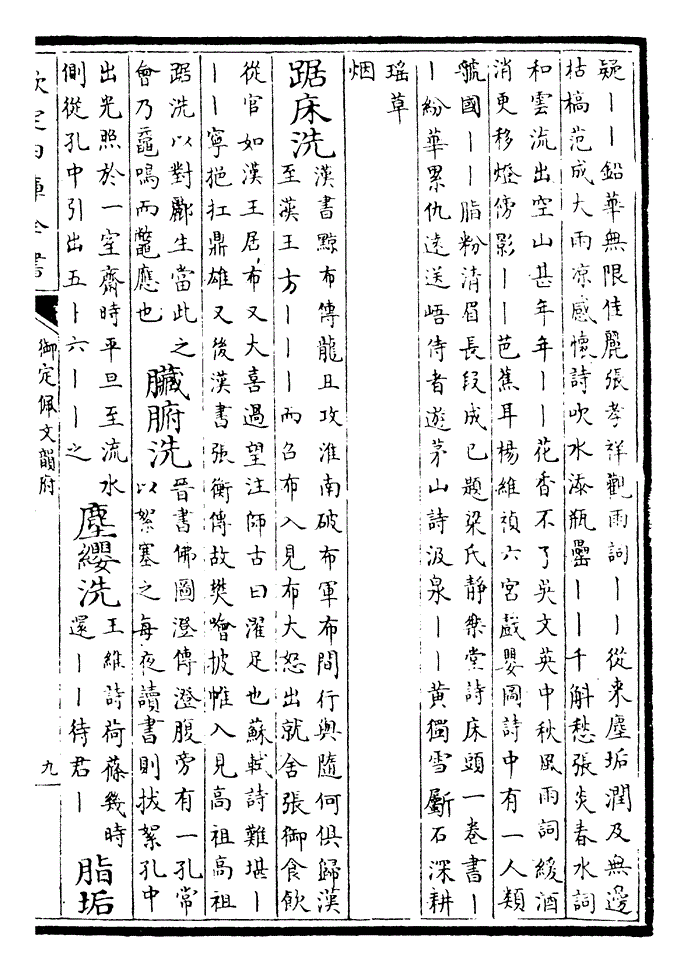 疑丨丨鉛華無限佳麗張孝祥觀雨詞丨丨從来塵垢潤及無邊
枯槁范成大雨凉感懷詩吹水添瓶罍丨丨千斛愁張炎春水詞
和雲流出空山甚年年丨丨花香不了吳文英中秋風雨詞緩酒
消更移燈傍影丨丨芭蕉耳楊維禎六宮戲嬰圖詩中有一人類
虢國丨丨脂粉清眉長段成已題梁氏靜樂堂詩床頭一卷書丨
丨紛華累仇遠送峿侍者遊茅山詩汲泉丨丨黄獨雪斸石深耕
瑶草
烟
踞床洗漢書黥布傳龍且攻淮南破布軍布間行與隨何俱歸漢
至漢王方丨丨丨而召布入見布大怒出就舍張御食飲
從官如漢王居布又大喜過望注師古曰濯足也蘇軾詩難堪丨
丨丨寧挹扛鼎雄又後漢書張衡傳故樊噲披帷入見高祖高祖
踞洗以對酈生當此之
會乃黿鳴而鼈應也
臟腑洗晉書佛圖澄傳澄腹旁有一孔常
以絮塞之每夜讀書則拔絮孔中
出光照於一室齋時平旦至流水
側從孔中引出五丨六丨丨之
塵纓洗王維詩荷蓧幾時
還丨丨待君丨
脂垢
欽定四庫全書
御定佩文韻府
九